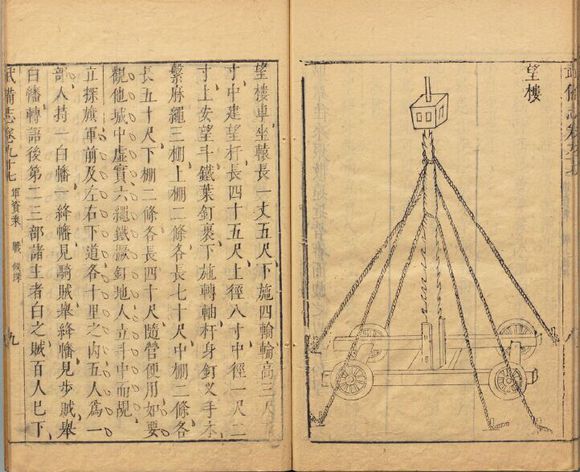 望樓
望樓車坐轅長一丈五尺下施四輪輪高三尺
寸中建望杆長四十五尺上徑八寸中徑一尺二
寸上安望斗鐵葉釘裹下施轉軸杆身釘叉手木
繫麻繩三棚上棚二條各長七十尺中棚二條各
長五十尺下棚二條各長四十尺隨營便用如要
觀他城中虛實六繩鐵橛釘地人立斗中而
立探旗軍前及左右下道各十里之內五人爲一
部人持一白幡一絳幡見騎賊舉絳幡見步賊舉
白幡轉語後第二三部諸主者白之賊百人已下
武備志卷九十七 軍資乘 戰 偵探 九